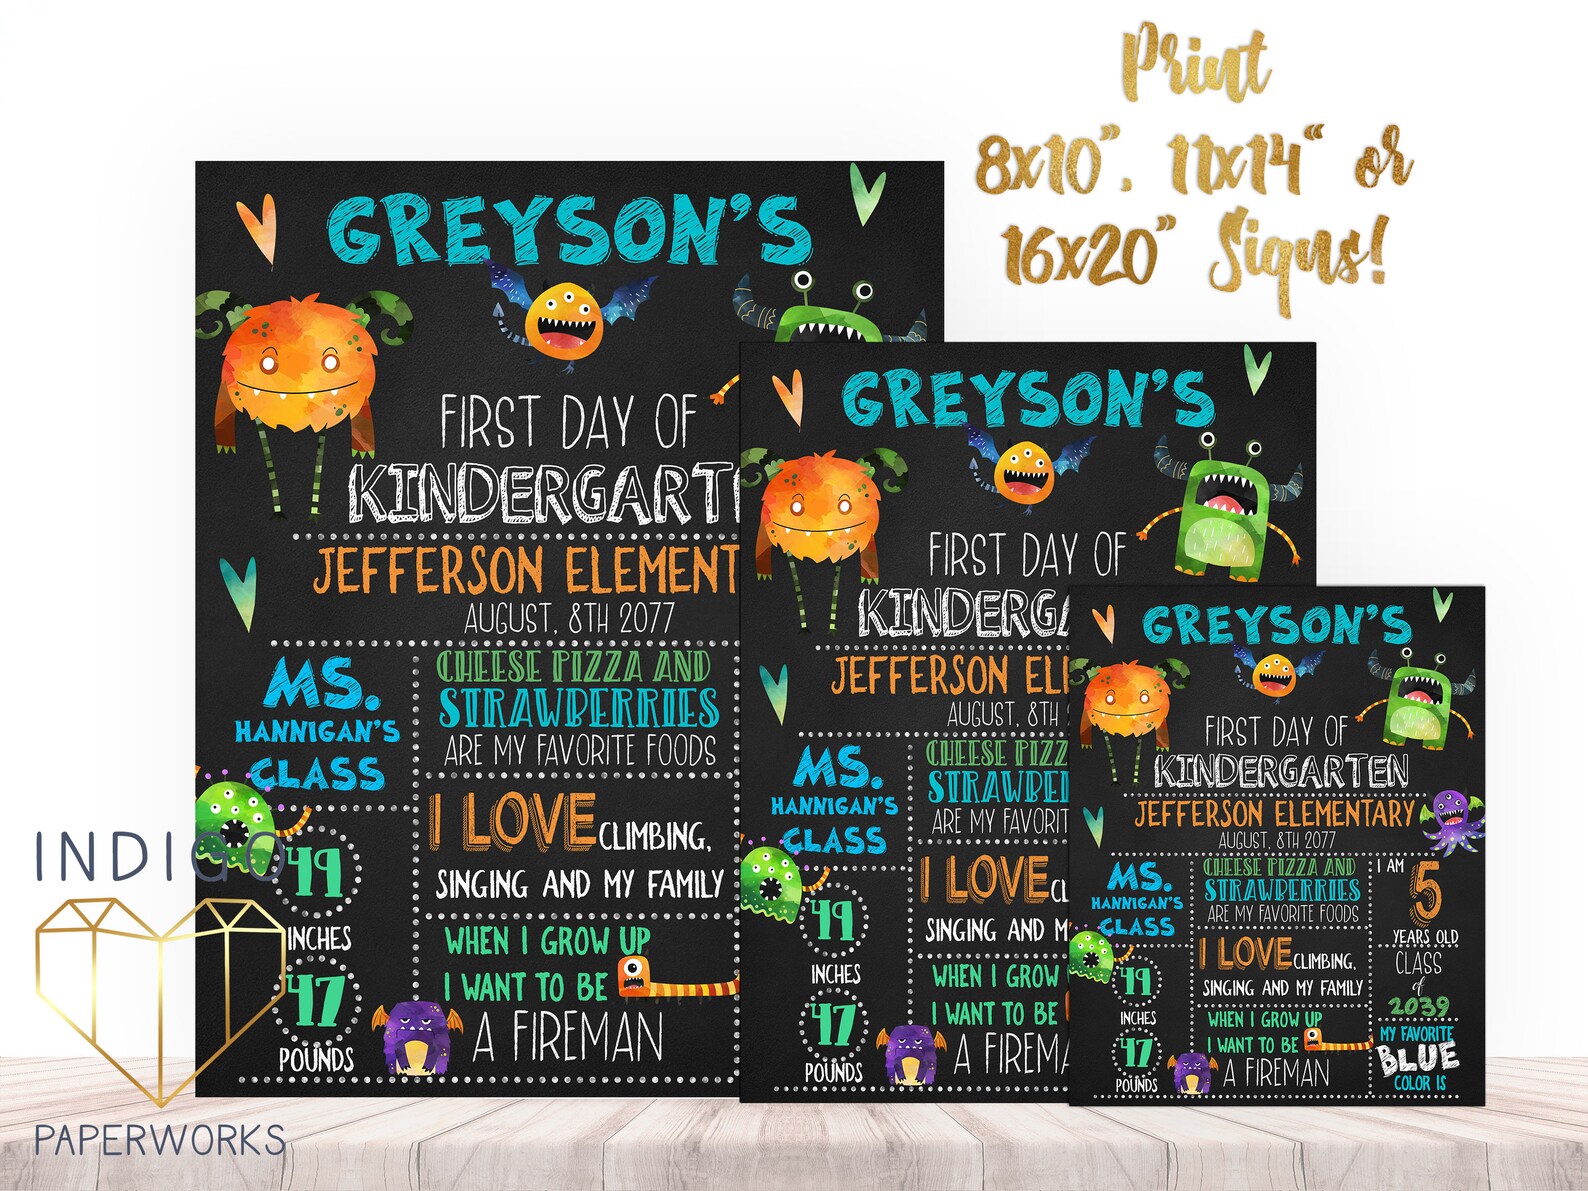 Print
8x10", 11x14" or
16x20" Signs!
GREYSON'S
FIRST DAY OF
KINDERGART
JEFFERSON ELEMENT
AUGUST, 8TH 2077
MS.
HANNIGAN'S
CLASS
CHEESE PIZZA AND
STRAWBERRIES
ARE MY FAVORITE FOODS
I LOVE CLIMBING,
SINGING AND MY FAMILY
49
INCHES
47
POUNDS
WHEN I GROW UP
I WANT TO BE
A FIREMAN
GREYSON'S
FIRST DAY OF
KINDERGA
JEFFERSON EL
AUGUST, 8TH
MS.
HANNIGAN'S
CLASS
CHEESE PIZZ
STRAWBE
ARE MY FAVORIT
I LOVE C
SINGING AND M
49
INCHES
47
POUNDS
WHEN I GROW
I WANT TO BE
A FIREMA
GREYSON'S
FIRST DAY OF
KINDERGARTEN
JEFFERSON ELEMENTARY
AUGUST, 8TH 2077
MS.
HANNIGAN'S
CLASS
CHEESE PIZZA AND
STRAWBERRIES
ARE MY FAVORITE FOODS
I LOVE CLIMBING,
SINGING AND MY FAMILY
49
INCHES
47
POUNDS
WHEN I GROW UP
I WANT TO BE
A FIREMAN
I AM 5
YEARS OLD
CLASS
of
2039
MY FAVORITE
BLUE
COLOR IS
INDIGO
PAPERWORKS